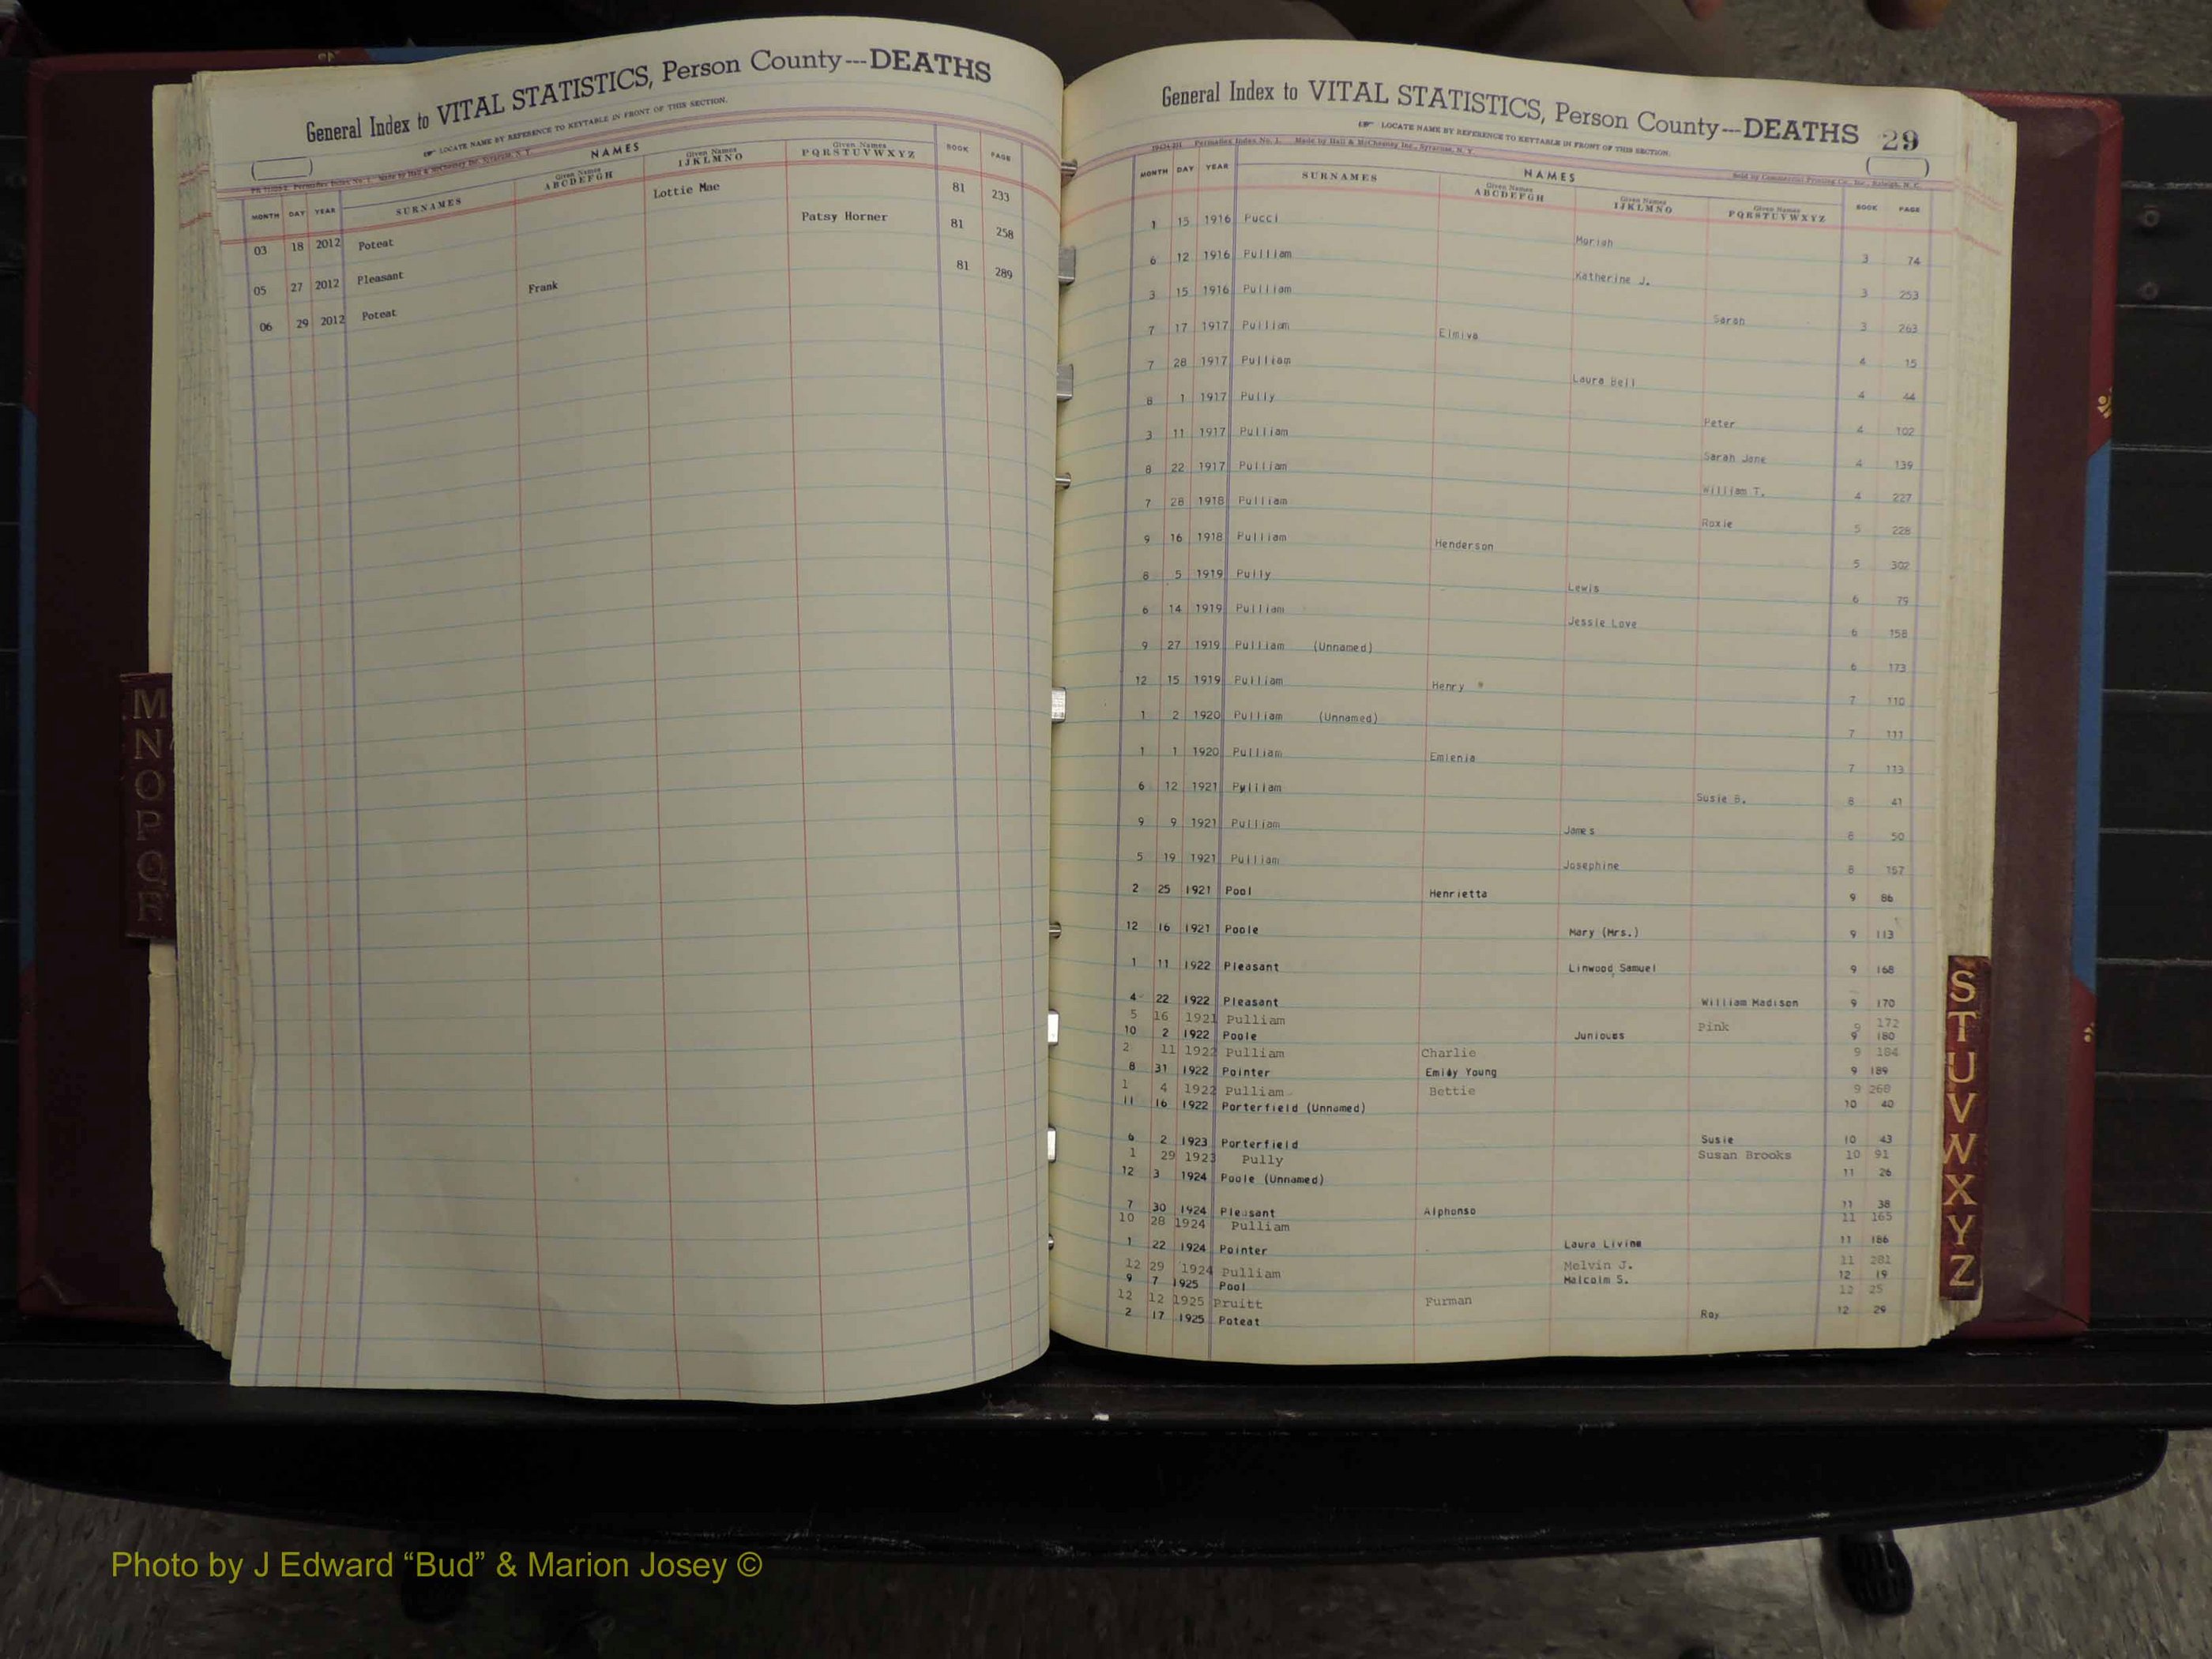 General Index to VITAL STATISTICS, Person County---DEATHS
LOCATE NAME BY REFERENCE TO KEYTABLE IN FRONT OF THIS SECTION.
NAMES
MONTH DAY YEAR SURNAMES Given Names ABCDEFGH Given Names IJKLMNO Given Names PQRSTUVWXYZ BOOK PAGE
03 18 2012 Poteat Lottie Mae 81 233
05 27 2012 Pleasant Patsy Horner 81 258
06 29 2012 Poteat Frank 81 289
General Index to VITAL STATISTICS, Person County---DEATHS 29
LOCATE NAME BY REFERENCE TO KEYTABLE IN FRONT OF THIS SECTION.
Permafles Index No. 1. Made by Hall & McChesney Inc., Syracuse, N. Y.
Sold by Commercial Printing Co., Inc., Raleigh, N. C.
NAMES
MONTH DAY YEAR SURNAMES Given Names ABCDEFGH Given Names IJKLMNO Given Names PQRSTUVWXYZ BOOK PAGE
1 15 1916 Pucci Moriah 3 74
6 12 1916 Pulliam Katherine J. 3 253
3 15 1916 Pulliam Sarah 3 263
7 17 1917 Pulliam Elmiva 4 15
7 28 1917 Pulliam Laura Bell 4 44
8 1 1917 Pully Peter 4 102
3 11 1917 Pulliam Sarah Jane 4 139
8 22 1917 Pulliam William T. 4 227
7 28 1918 Pulliam Roxie 5 228
9 16 1918 Pulliam Henderson 5 302
8 5 1919 Pully Lewis 6 79
6 14 1919 Pulliam Jessie Love 6 158
9 27 1919 Pulliam (Unnamed) 6 173
12 15 1919 Pulliam Henry * 7 110
1 2 1920 Pulliam (Unnamed) 7 111
1 1 1920 Pulliam Emlenia 7 113
6 12 1921 Pulliam Susie B. 8 41
9 9 1921 Pulliam James 8 50
5 19 1921 Pulliam Josephine 8 157
2 25 1921 Pool Henrietta 9 86
12 16 1921 Poole Mary (Mrs.) 9 113
1 11 1922 Pleasant Linwood Samuel 9 168
4 22 1922 Pleasant William Madison 9 170
5 16 1921 Pulliam Pink 9 172
10 2 1922 Poole Juniouss 9 180
2 11 1922 Pulliam Charlie 9 184
8 31 1922 Pointer Emily Young 9 189
1 4 1922 Pulliam Bettie 9 260
11 16 1922 Porterfield (Unnamed) 10 40
6 2 1923 Porterfield Susie 10 43
1 29 1923 Pully Susan Brooks 10 91
12 3 1924 Poole (Unnamed) 11 26
7 30 1924 Pleasant Alphonso 11 38
10 28 1924 Pulliam 11 165
1 22 1924 Pointer Laura Livine 11 186
12 29 1924 Pulliam Melvin J. 11 281
9 7 1925 Pool Malcolm S. 12 19
12 12 1925 Pruitt Furman 12 25
2 17 1925 Poteat Roy 12 29
M
N
O
P
Q
R
S
T
U
V
W
X
Y
Z
Photo by J Edward “Bud” & Marion Josey ©